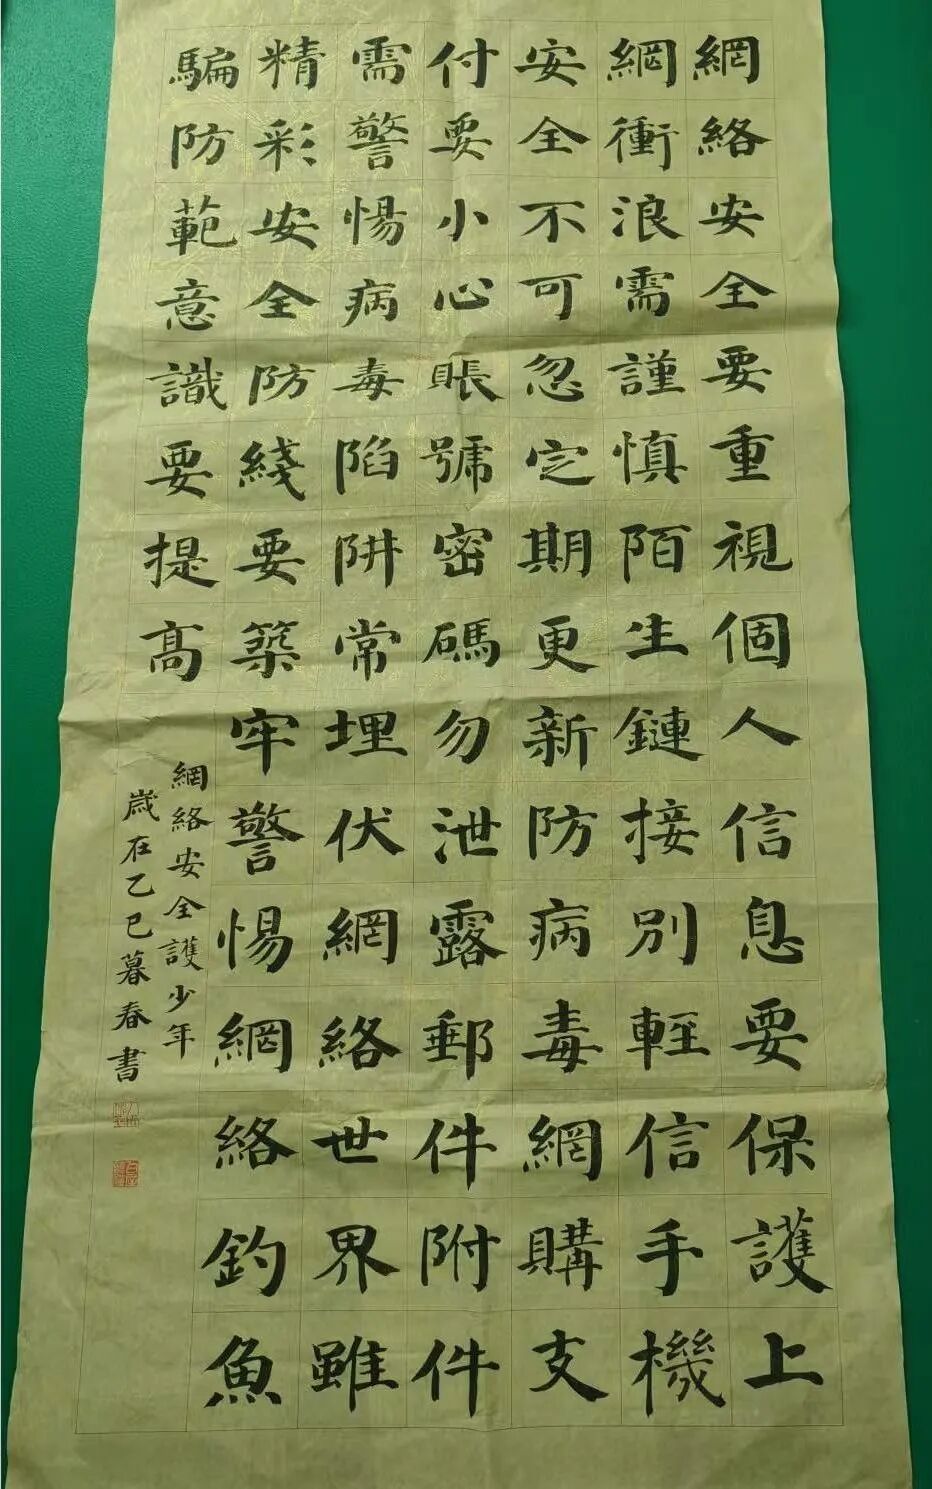 網絡安全要重視個人信息要保護上
網衝浪需謹慎陌生鏈接別輕信手機
安全不可忽定期更新防病毒網購支
付要小心賬號密碼勿泄露郵件附件
需警惕病毒陷阱常埋伏網絡世界雖
精彩安全防綫要築牢警惕網絡釣魚
騙防範意識要提高
網絡安全護少年
歲在乙巳暮春書